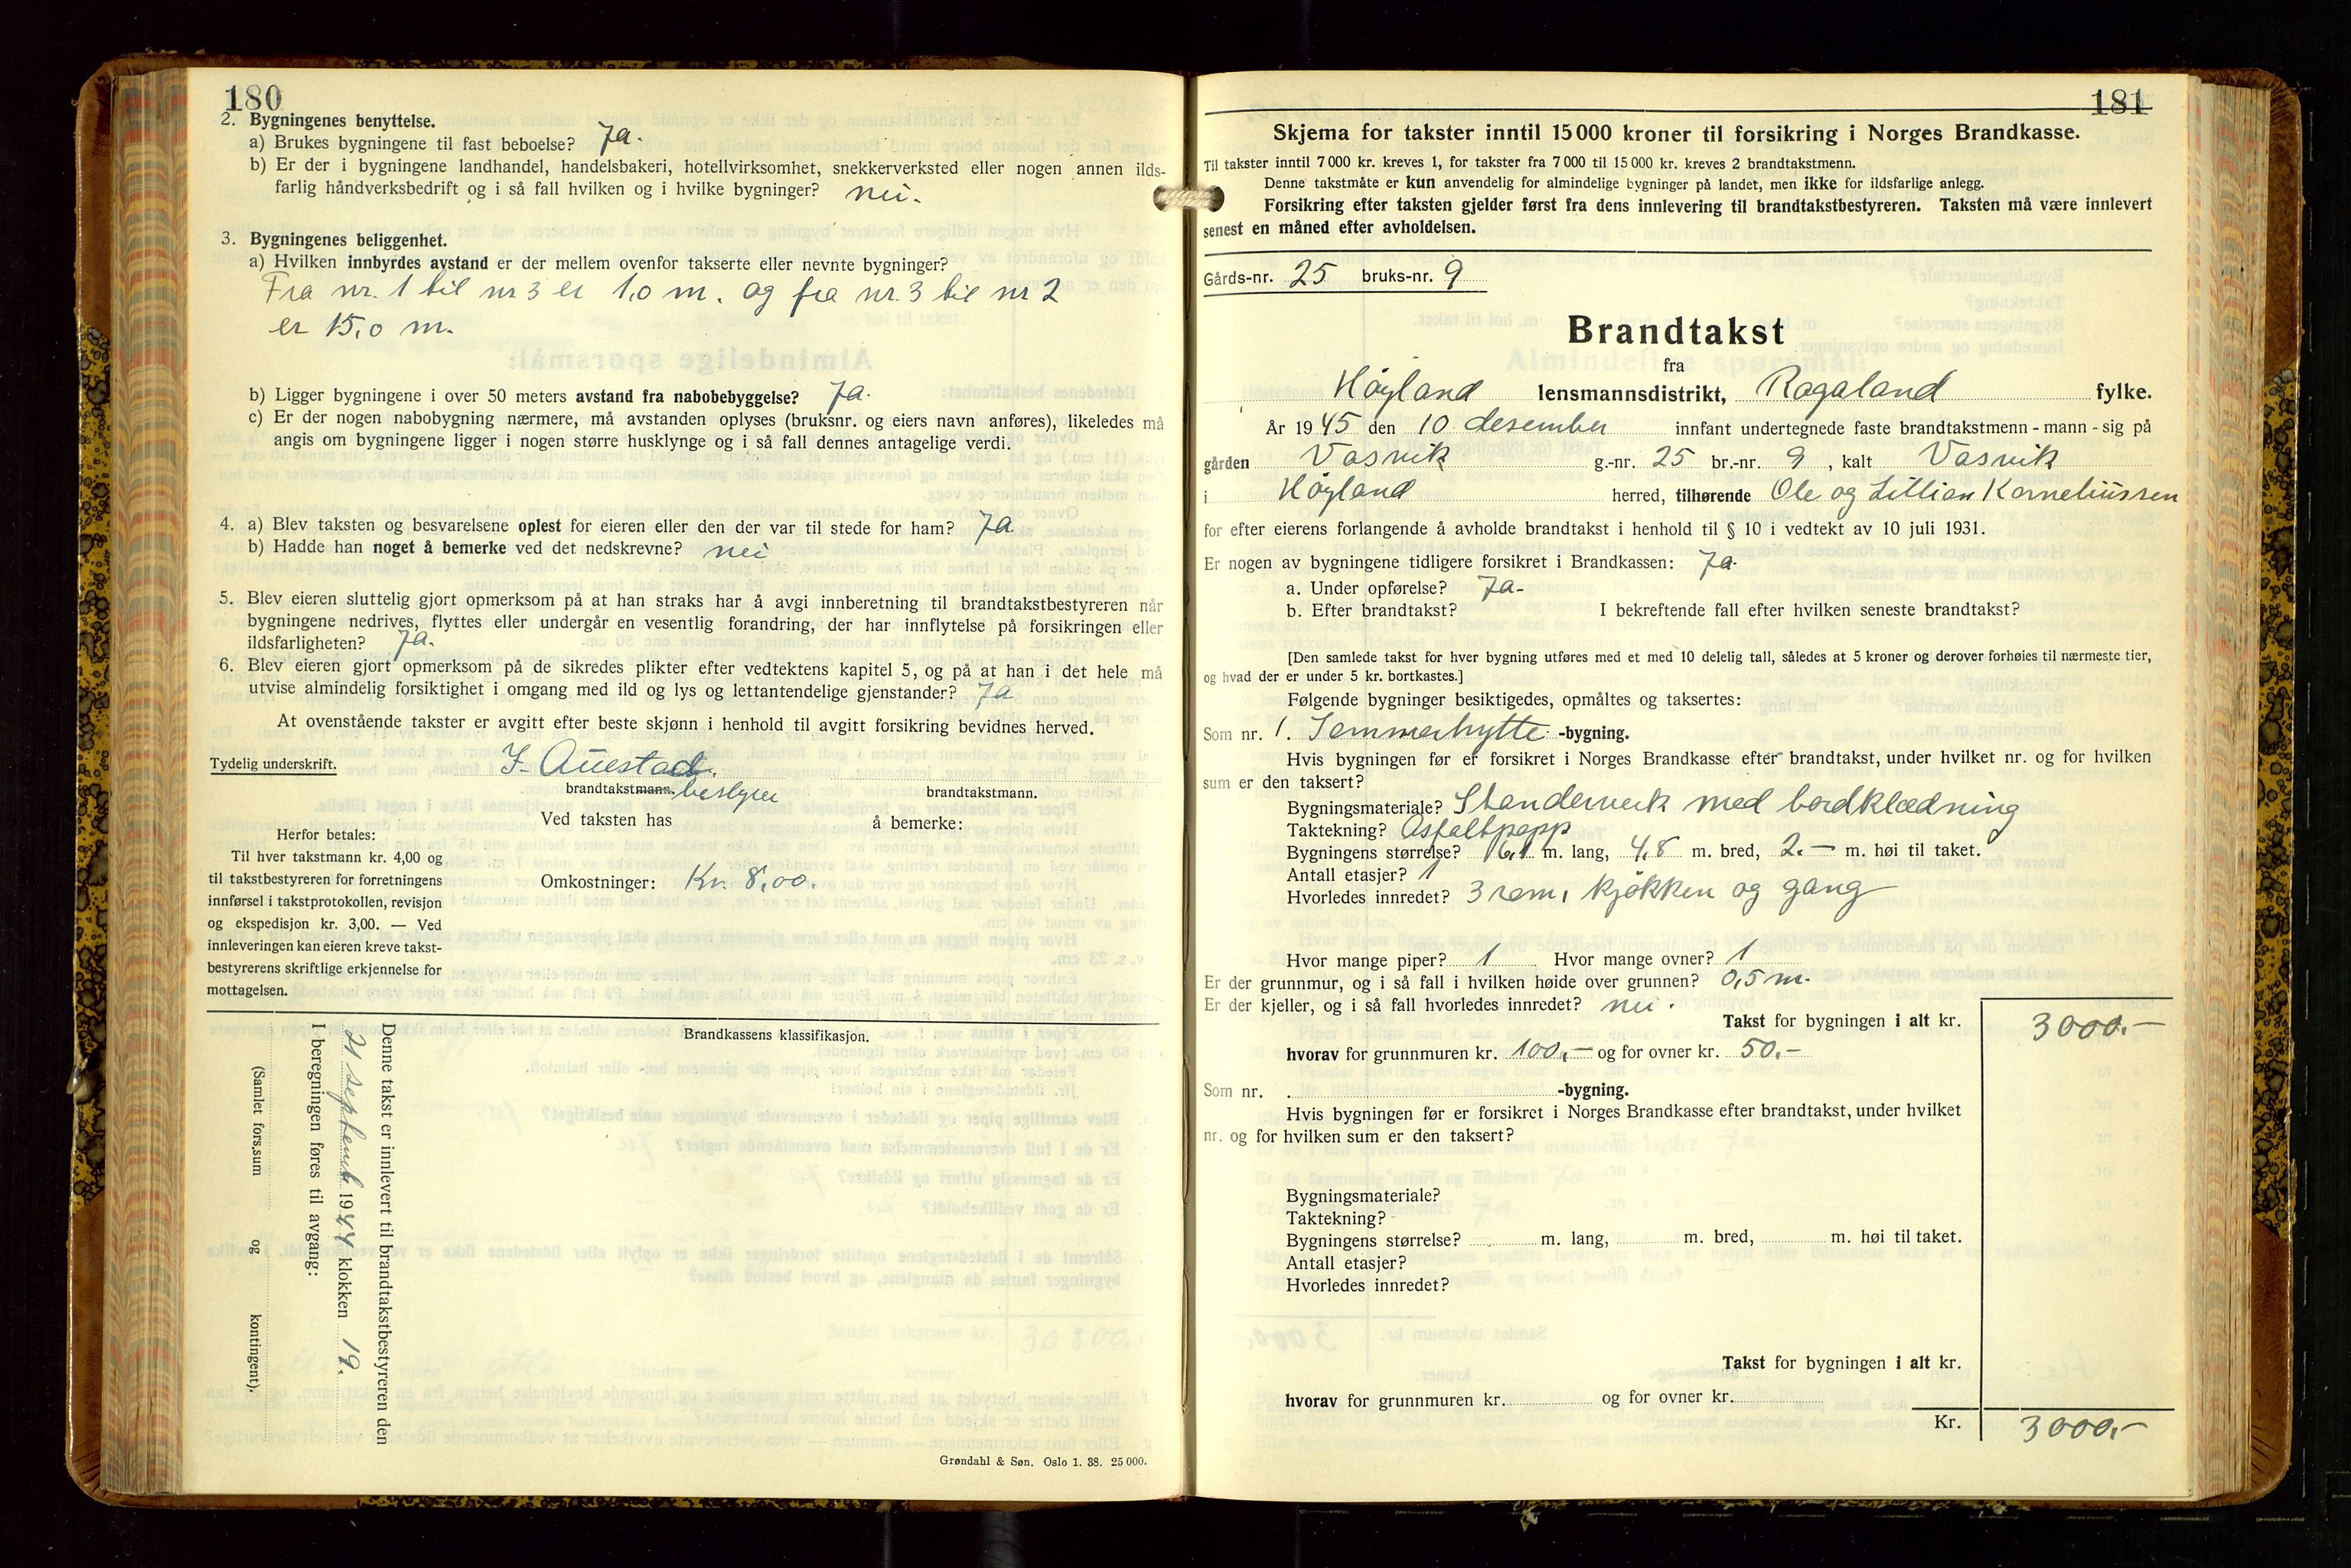 180
2. Bygningenes benyttelse.
a) Brukes bygningene til fast beboelse? Ja.
b) Er der i bygningene landhandel, handelsbakeri, hotellvirksomhet, snekkerverksted eller nogen annen ilds-
farlig håndverksbedrift og i så fall hvilken og i hvilke bygninger? nei.
3. Bygningenes beliggenhet.
a) Hvilken innbyrdes avstand er der mellem ovenfor takserte eller nevnte bygninger?
Fra nr. 1 til nr 3 er 1,0 m. og fra nr. 3 til nr 2
er 15,0 m.
b) Ligger bygningene i over 50 meters avstand fra nabobebyggelse? Ja.
c) Er der nogen nabobygning nærmere, må avstanden oplyses (bruksnr. og eiers navn anføres), likeledes må
angis om bygningene ligger i nogen større husklynge og i så fall dennes antagelige verdi.
4. a) Blev taksten og besvarelsene oplest for eieren eller den der var til stede for ham? Ja
b) Hadde han noget å bemerke ved det nedskrevne? nei
5. Blev eieren sluttelig gjort opmerksom på at han straks har å avgi innberetning til brandtakstbestyreren når
bygningene nedrives, flyttes eller undergår en vesentlig forandring, der har innflytelse på forsikringen eller
ildsfarligheten? Ja.
6. Blev eieren gjort opmerksom på de sikredes plikter efter vedtektens kapitel 5, og på at han i det hele må
utvise almindelig forsiktighet i omgang med ild og lys og lettantendelige gjenstander? Ja
At ovenstående takster er avgitt efter beste skjønn i henhold til avgitt forsikring bevidnes herved.
Tydelig underskrift. J. Auestad.
brandtakstmann. bestyrer brandtakstmann.
Ved taksten has å bemerke:
Herfor betales:
Til hver takstmann kr. 4,00 og
til takstbestyreren for forretningens
innførsel i takstprotokollen, revisjon
og ekspedisjon kr. 3,00. — Ved
innleveringen kan eieren kreve takst-
bestyrerens skriftlige erkjennelse for
mottagelsen.
Omkostninger: Kr. 8,00.
Brandkassens klassifikasjon.
Denne takst er innlevert til brandtakstbestyreren den
21 september 1944 klokken 19.
I beregningen føres til avgang:
(Samlet fors.sum og kontingent).
Grøndahl & Søn. Oslo 1. 38. 25 000.
181
Skjema for takster inntil 15 000 kroner til forsikring i Norges Brandkasse.
Til takster inntil 7 000 kr. kreves 1, for takster fra 7 000 til 15 000 kr. kreves 2 brandtakstmenn.
Denne takstmåte er kun anvendelig for almindelige bygninger på landet, men ikke for ildsfarlige anlegg.
Forsikring efter taksten gjelder først fra dens innlevering til brandtakstbestyreren. Taksten må være innlevert
senest en måned efter avholdelsen.
Gårds-nr. 25 bruks-nr. 9
Brandtakst
fra
Høyland lensmannsdistrikt, Rogaland fylke.
År 1945 den 10 desember innfant undertegnede faste brandtakstmenn - mann - sig på
gården Vasvik g.-nr. 25 br.-nr. 9, kalt Vasvik
i Høyland herred, tilhørende Ole og Lillian Korneliussen
for efter eierens forlangende å avholde brandtakst i henhold til § 10 i vedtekt av 10 juli 1931.
Er nogen av bygningene tidligere forsikret i Brandkassen: Ja.
a. Under opførelse? Ja-
b. Efter brandtakst? I bekreftende fall efter hvilken seneste brandtakst?
[Den samlede takst for hver bygning utføres med et med 10 delelig tall, således at 5 kroner og derover forhøies til nærmeste tier,
og hvad der er under 5 kr. bortkastes.]
Følgende bygninger besiktigedes, opmåltes og taksertes:
Som nr. 1. Sommerhytte -bygning.
Hvis bygningen før er forsikret i Norges Brandkasse efter brandtakst, under hvilket nr. og for hvilken
sum er den taksert?
Bygningsmateriale? Standerverk med bordklædning
Taktekning? Asfaltpapp
Bygningens størrelse? 6,1 m. lang, 4,8 m. bred, 2.— m. høi til taket.
Antall etasjer? 1
Hvorledes innredet? 3 rom, kjøkken og gang
Hvor mange piper? 1 Hvor mange ovner? 1
Er der grunnmur, og i så fall i hvilken høide over grunnen? 0,5 m.
Er der kjeller, og i så fall hvorledes innredet? nei.
Takst for bygningen i alt kr. 3000.—
hvorav for grunnmuren kr. 100,— og for ovner kr. 50.—
Som nr. . -bygning.
Hvis bygningen før er forsikret i Norges Brandkasse efter brandtakst, under hvilket
nr. og for hvilken sum er den taksert?
Bygningsmateriale?
Taktekning?
Bygningens størrelse? m. lang, m. bred, m. høi til taket.
Antall etasjer?
Hvorledes innredet?
Takst for bygningen i alt kr.
hvorav for grunnmuren kr. og for ovner kr.
Kr. 3000,-